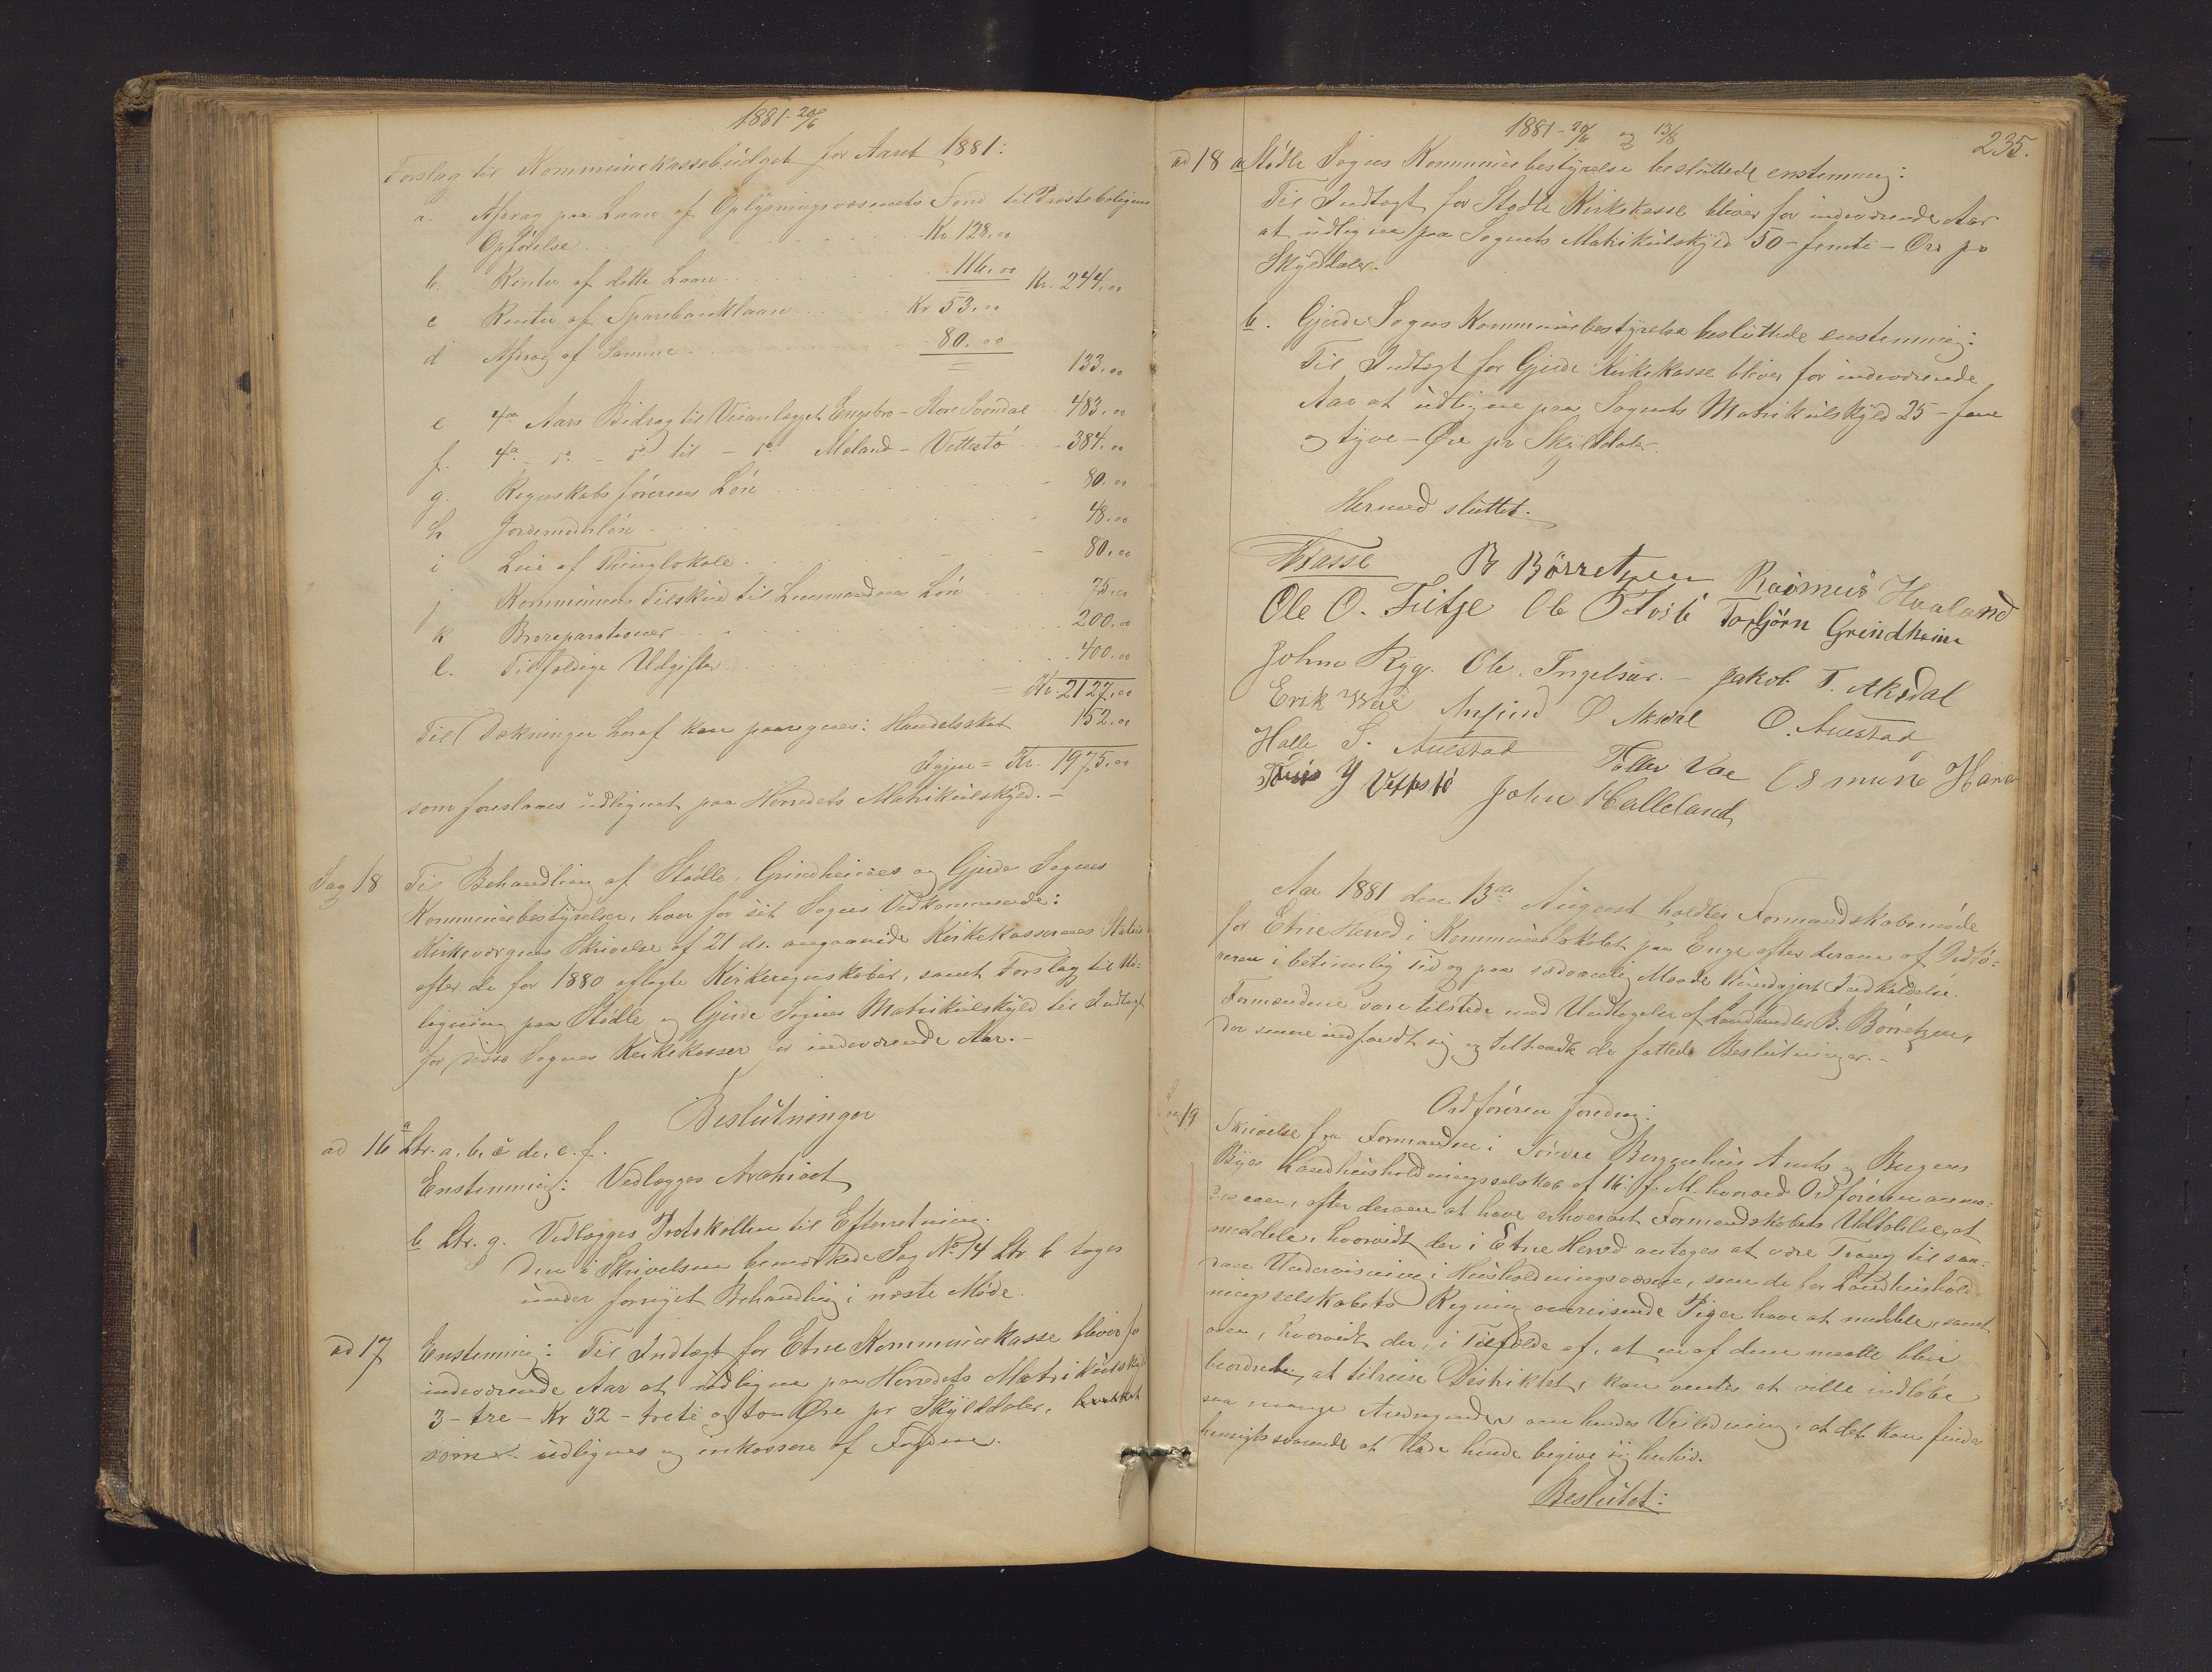 1881-20/6
Forslag til Kommunekassebudget for Aaret 1881:
a. Afdrag paa Laan af Oplysningsvæsenets Fond til Præsteboligens
Opførelse Kr 128.00
b. Renter af dette Laan 116.00 Kr. 244.00
c Renter af Sparebanklaan Kr 53.00
d Afdrag af Samme 80.00
133.00
e 4de Aars Bidrag til Veianlægget Engebro - Store Svendal 483.00
f. 4de do - do til - do Møland - Vettestø 384.00
g. Regnskabsførerens Løn 80.00
h Jordmoderløn 48.00
i Leie af Thinglokale 80.00
j Kommunens Tilskud til Lensmandens Løn 75.00
k Broreparationer 200.00
l. Tilfældige Udgifter 400.00
= Kr. 2127.00
Til Dækningen heraf kan paaregnes: Handelsskat 152.00
Igjen = Kr. 1975.00
som foreslaaes udlignet paa Herredets Matrikulskyld.-
Sag 18 Til Behandling af Stødle, Grindheims og Gjerde Sognes
Kommunebestyrelser, hver for sit Sogns Vedkommende:
Kirkeværgens Skrivelse af 21 ds. angaaende Kirkekassernes Status
efter de for 1880 aflagte Kirkeregnskaber, samt Forslag til Ud-
ligning paa Stødle og Gjerde Sognes Matrikulskyld til Indtægt
for disse Sognes Kirkekasser for indeværende Aar.-
Beslutninger
ad 16 a Ltr. a. b. c d. e. f.
Enstemmig: Vedlægges Archivet
b Ltr. g. Vedlægges Protokollen til Efterretning.
Den i Skrivelsen bemærkede Sag No 14 Ltr. b tages
under fornyet Behandling i næste Møde.
ad 17 Enstemmig: Til Indtægt for Etne Kommunekasse bliver for
indeværende Aar at udligne paa Herredets Matrikulskyld
3 - tre - Kr 32 - treti og to Øre pr Skylddaler,
som udlignes og inkassere af Fogden.
1881-20/6 og 13/8
235.
ad 18 a Stødle Sogns Kommunebestyrelse besluttede enstemmig:
Til Indtægt for Stødle Kirkekasse bliver for indeværende Aar
at udligne paa Sognets Matrikulskyld 50 - femti - Øre pr
Skylddaler.
b. Gjerde Sogns Kommunebestyrelse besluttede enstemmig:
Til Indtægt for Gjerde Kirkekasse bliver for indeværende
Aar at udligne paa Sognets Matrikulskyld 25 - fem
og tyve - Øre pr Skylddaler.
Hermed sluttet.
B Børretzen Rasmus Haaland
Ole O. Fitje Ole Torbjørn Grindheim
John Ryg. Ole. Jakob T. Aksdal
Erik O Aksdal O. Austad
Halle S. Austad Vae
Y Vettestø John Halleland
Aar 1881 den 13de August holdtes Formandskabsmøde
for Etne Herred i Kommunelokalet paa Enge efter derom af Ordfø-
reren i betimelig Tid og paa sædvanlig Maade kundgjort Indkaldelse.
Formændene vare tilstede med Undtagelse af Landhandler B. Børretzen,
der senere indfandt sig og tiltraadte de fattede Beslutninger.-
Ordføreren foredrog:
Sag 19 Skrivelse fra Formanden i Søndre Bergenhus Amts og Bergens
Byes Landhusholdningsselskab af 16 f. M. hvorved Ordføreren anmo-
des om, efter derom at have erhvervet Formandskabets Udtalelse, at
meddele, hvorvidt der i Etne Herred antages at være Trang til saa-
dan Undervisning i Husholdningsvæsen, som de for Landhushold-
ningsselskabets Regning omreisende Piger have at meddele, samt
om, hvorvidt der, i Tilfælde af, at en af dem maatte blive
beordret, at tilreise Distriktet, kan ventes at ville indløbe
saa mange Andragender om hendes Veiledning, at det kan findes
hensigtssvarende at lade hende begive sig herhid.
Besluttet: